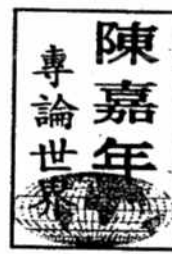 陳嘉年
專論世界